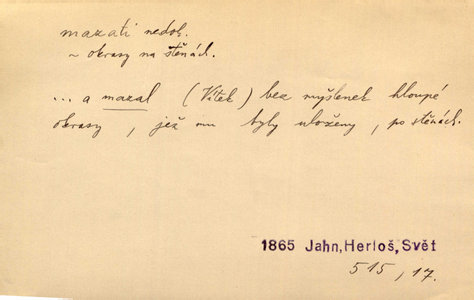 mazati nedok.
~ okrasy na stěnách.
... a mazal (Vítek) bez myšlenek hloupé
okrasy, jež mu byly uloženy, po stěnách.
1865 Jahn, Herloš, Svět
515, 17.